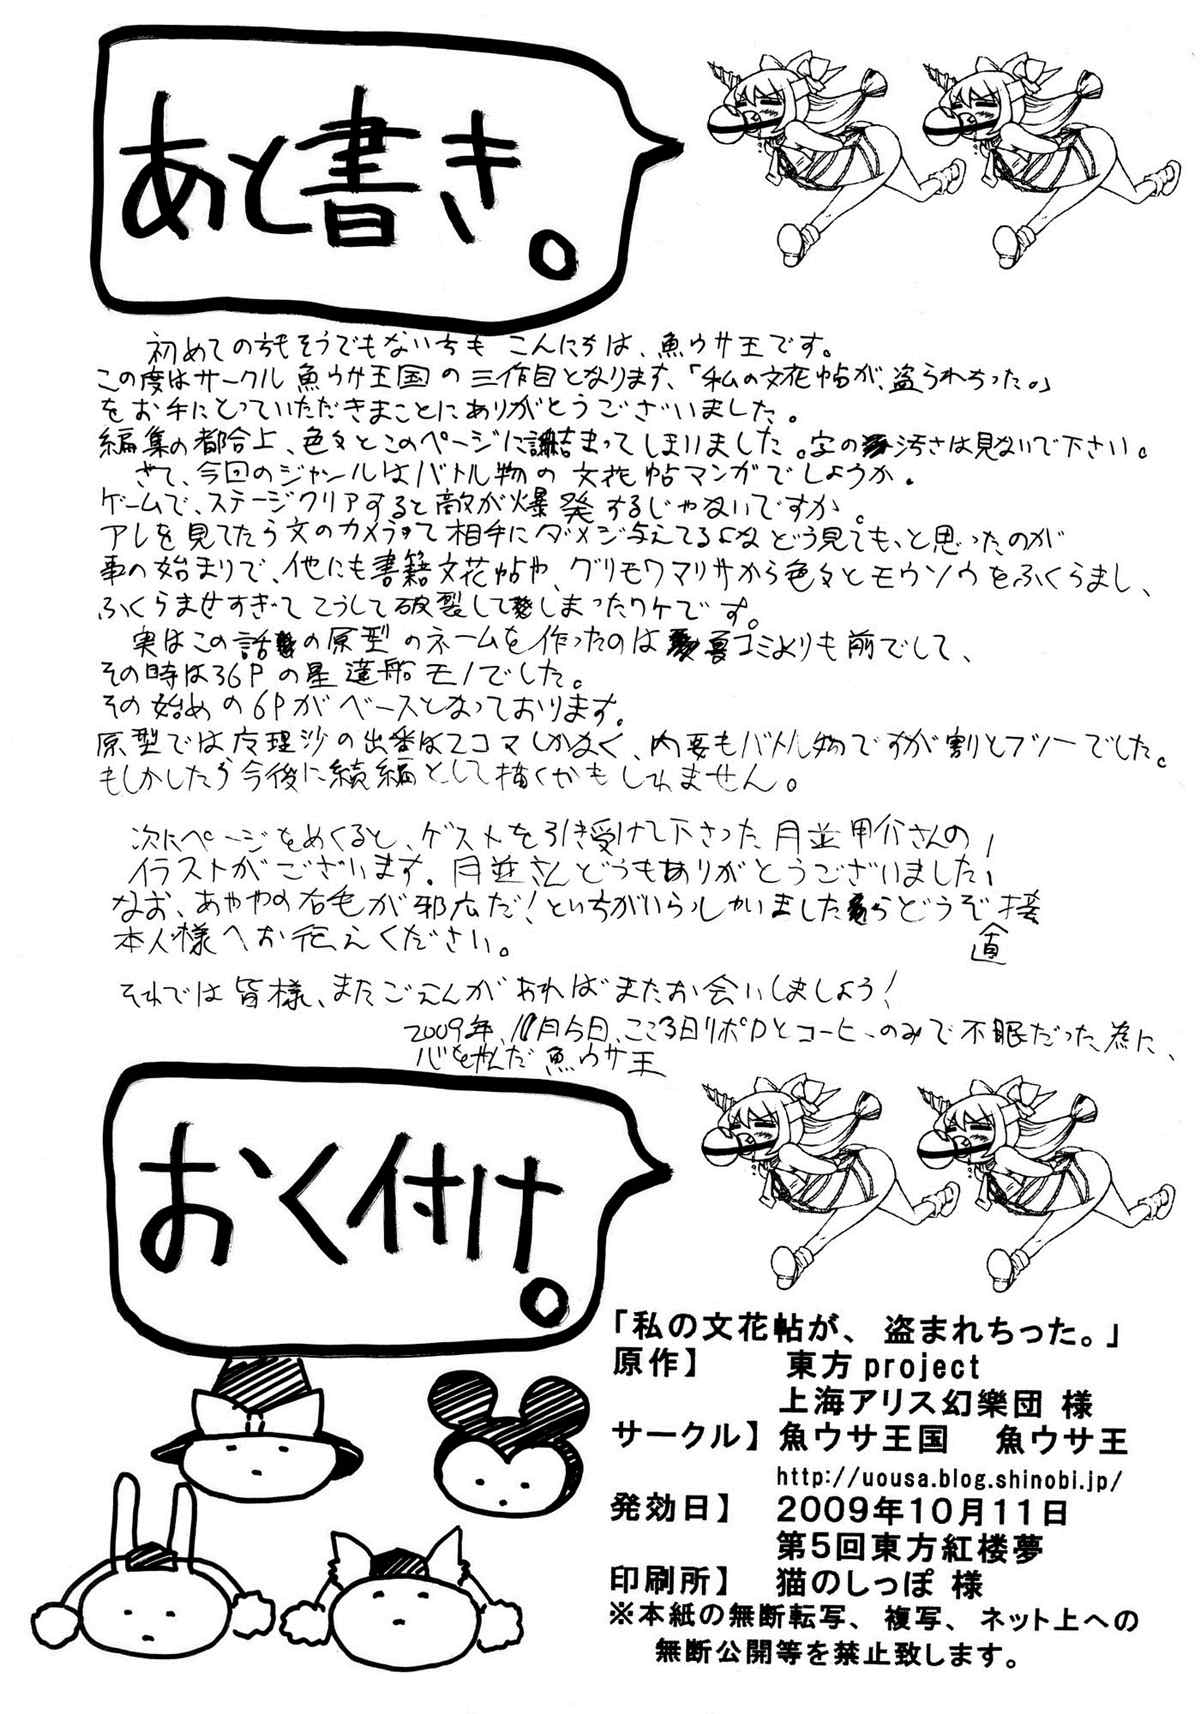 あと書き。
初めての方もそうでもない方も こんにちは、魚ウサ王です。
この度はサークル 魚ウサ王国の三作目となります、「私の文花帖が、盗られちった。」
をお手にとっていただきまことにありがとうございました。
編集の都合上、色々とこのページに詰まってしまいました。字の汚さは見ないで下さい。
さて、今回のジャンルはバトル物の文花帖マンガでしょうか。
ゲームで、ステージクリアすると敵が爆発するじゃないですか。
アレを見てたら文のカメラって相手にダメージ与えてるよねどう見ても、と思ったのが
事の始まりで、他にも書籍文花帖や、グリモワマリサから色々とモウソウをふくらまし、
ふくらませすぎてこうして破裂してしまったワケです。
実はこの話の原型のネームを作ったのは夏コミよりも前でして、
その時は36Pの星蓮船モノでした。
その始めの6Pがベースとなっております。
原型では魔理沙の出番は2コマしかなく、内容もバトル物ですが割とフツーでした。
もしかしたら今後に続編として描くかもしれません。
次にページをめくると、ゲストを引き受けて下さった月並甲介さんの
イラストがございます。月並さんどうもありがとうございました!
なお、あややの右毛が邪広だ!といち方がいらっしゃいましたらどうぞ直接
本人様へお伝えください。
それでは皆様、またごえんがあればまたお会いしましょう!
2009年、10月5日、ここ3日リポDとコーヒーのみで不眠だった為に、
心をやんだ 魚ウサ王
おく付け。
「私の文花帖が、盗まれちった。」
原作】 東方project
上海アリス幻樂団 様
サークル】魚ウサ王国 魚ウサ王
http://uousa.blog.shinobi.jp/
発効日】 2009年10月11日
第5回東方紅楼夢
印刷所】 猫のしっぽ 様
※本紙の無断転写、複写、ネット上への
無断公開等を禁止致します。